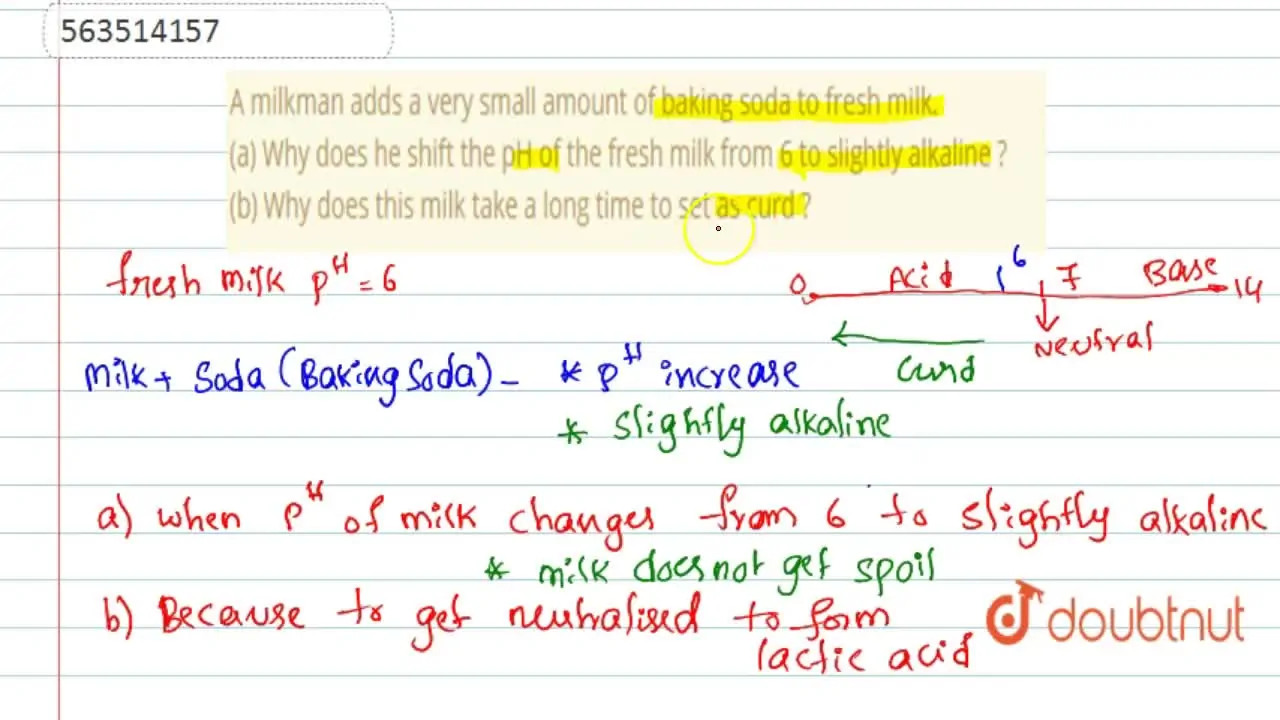 563514157
A milkman adds a very small amount of baking soda to fresh milk.
(a) Why does he shift the pH of the fresh milk from 6 to slightly alkaline ?
(b) Why does this milk take a long time to set as curd ?
fresh milk pH = 6
0 Acid 6 7 Base 14
Neutral
curd
milk + Soda (Baking Soda) - * pH increase
* slightly alkaline
a) when pH of milk changes from 6 to slightly alkaline
* milk does not get spoil
b) Because to get neutralised to form
lactic acid
doubtnut